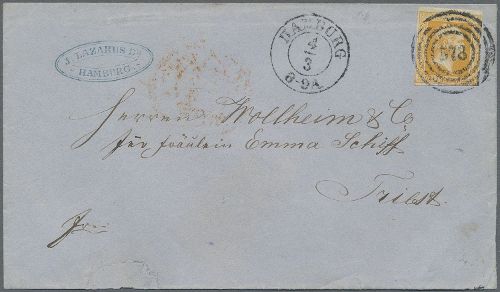 J. LAZARUS Dr.
HAMBURG
HAMBURG
4
3
6-9A
Herren Wollheim & Co
für Fräulein Emma Schiff
Triest.